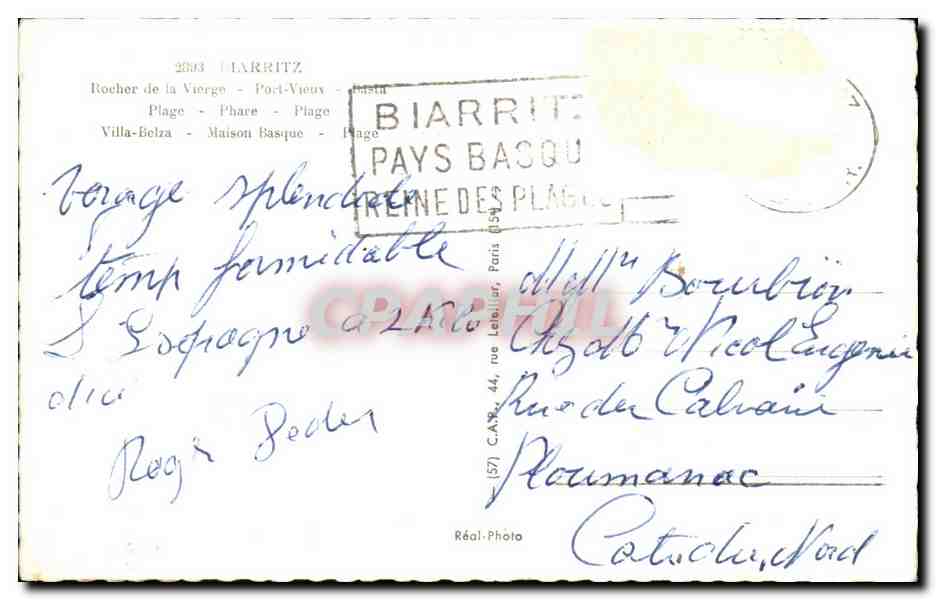 2893 BIARRITZ
Rocher de la Vierge - Port-Vieux - Basta
Plage - Phare - Plage
Villa-Belza - Maison Basque - Plage
BIARRITZ
PAYS BASQU
REINE DES PLAGES
Voyage splendide
temp formidable
L'Espagne a 2 Kilo
d'ici
Roger
(57) C.A.P., 44, rue Letellier, Paris (15e)
Réal-Photo
CPAPHIL
Bourbion
Chez Mr Nicol Eugenie
Rue du Calvaire
Ploumanac
Cotes du Nord